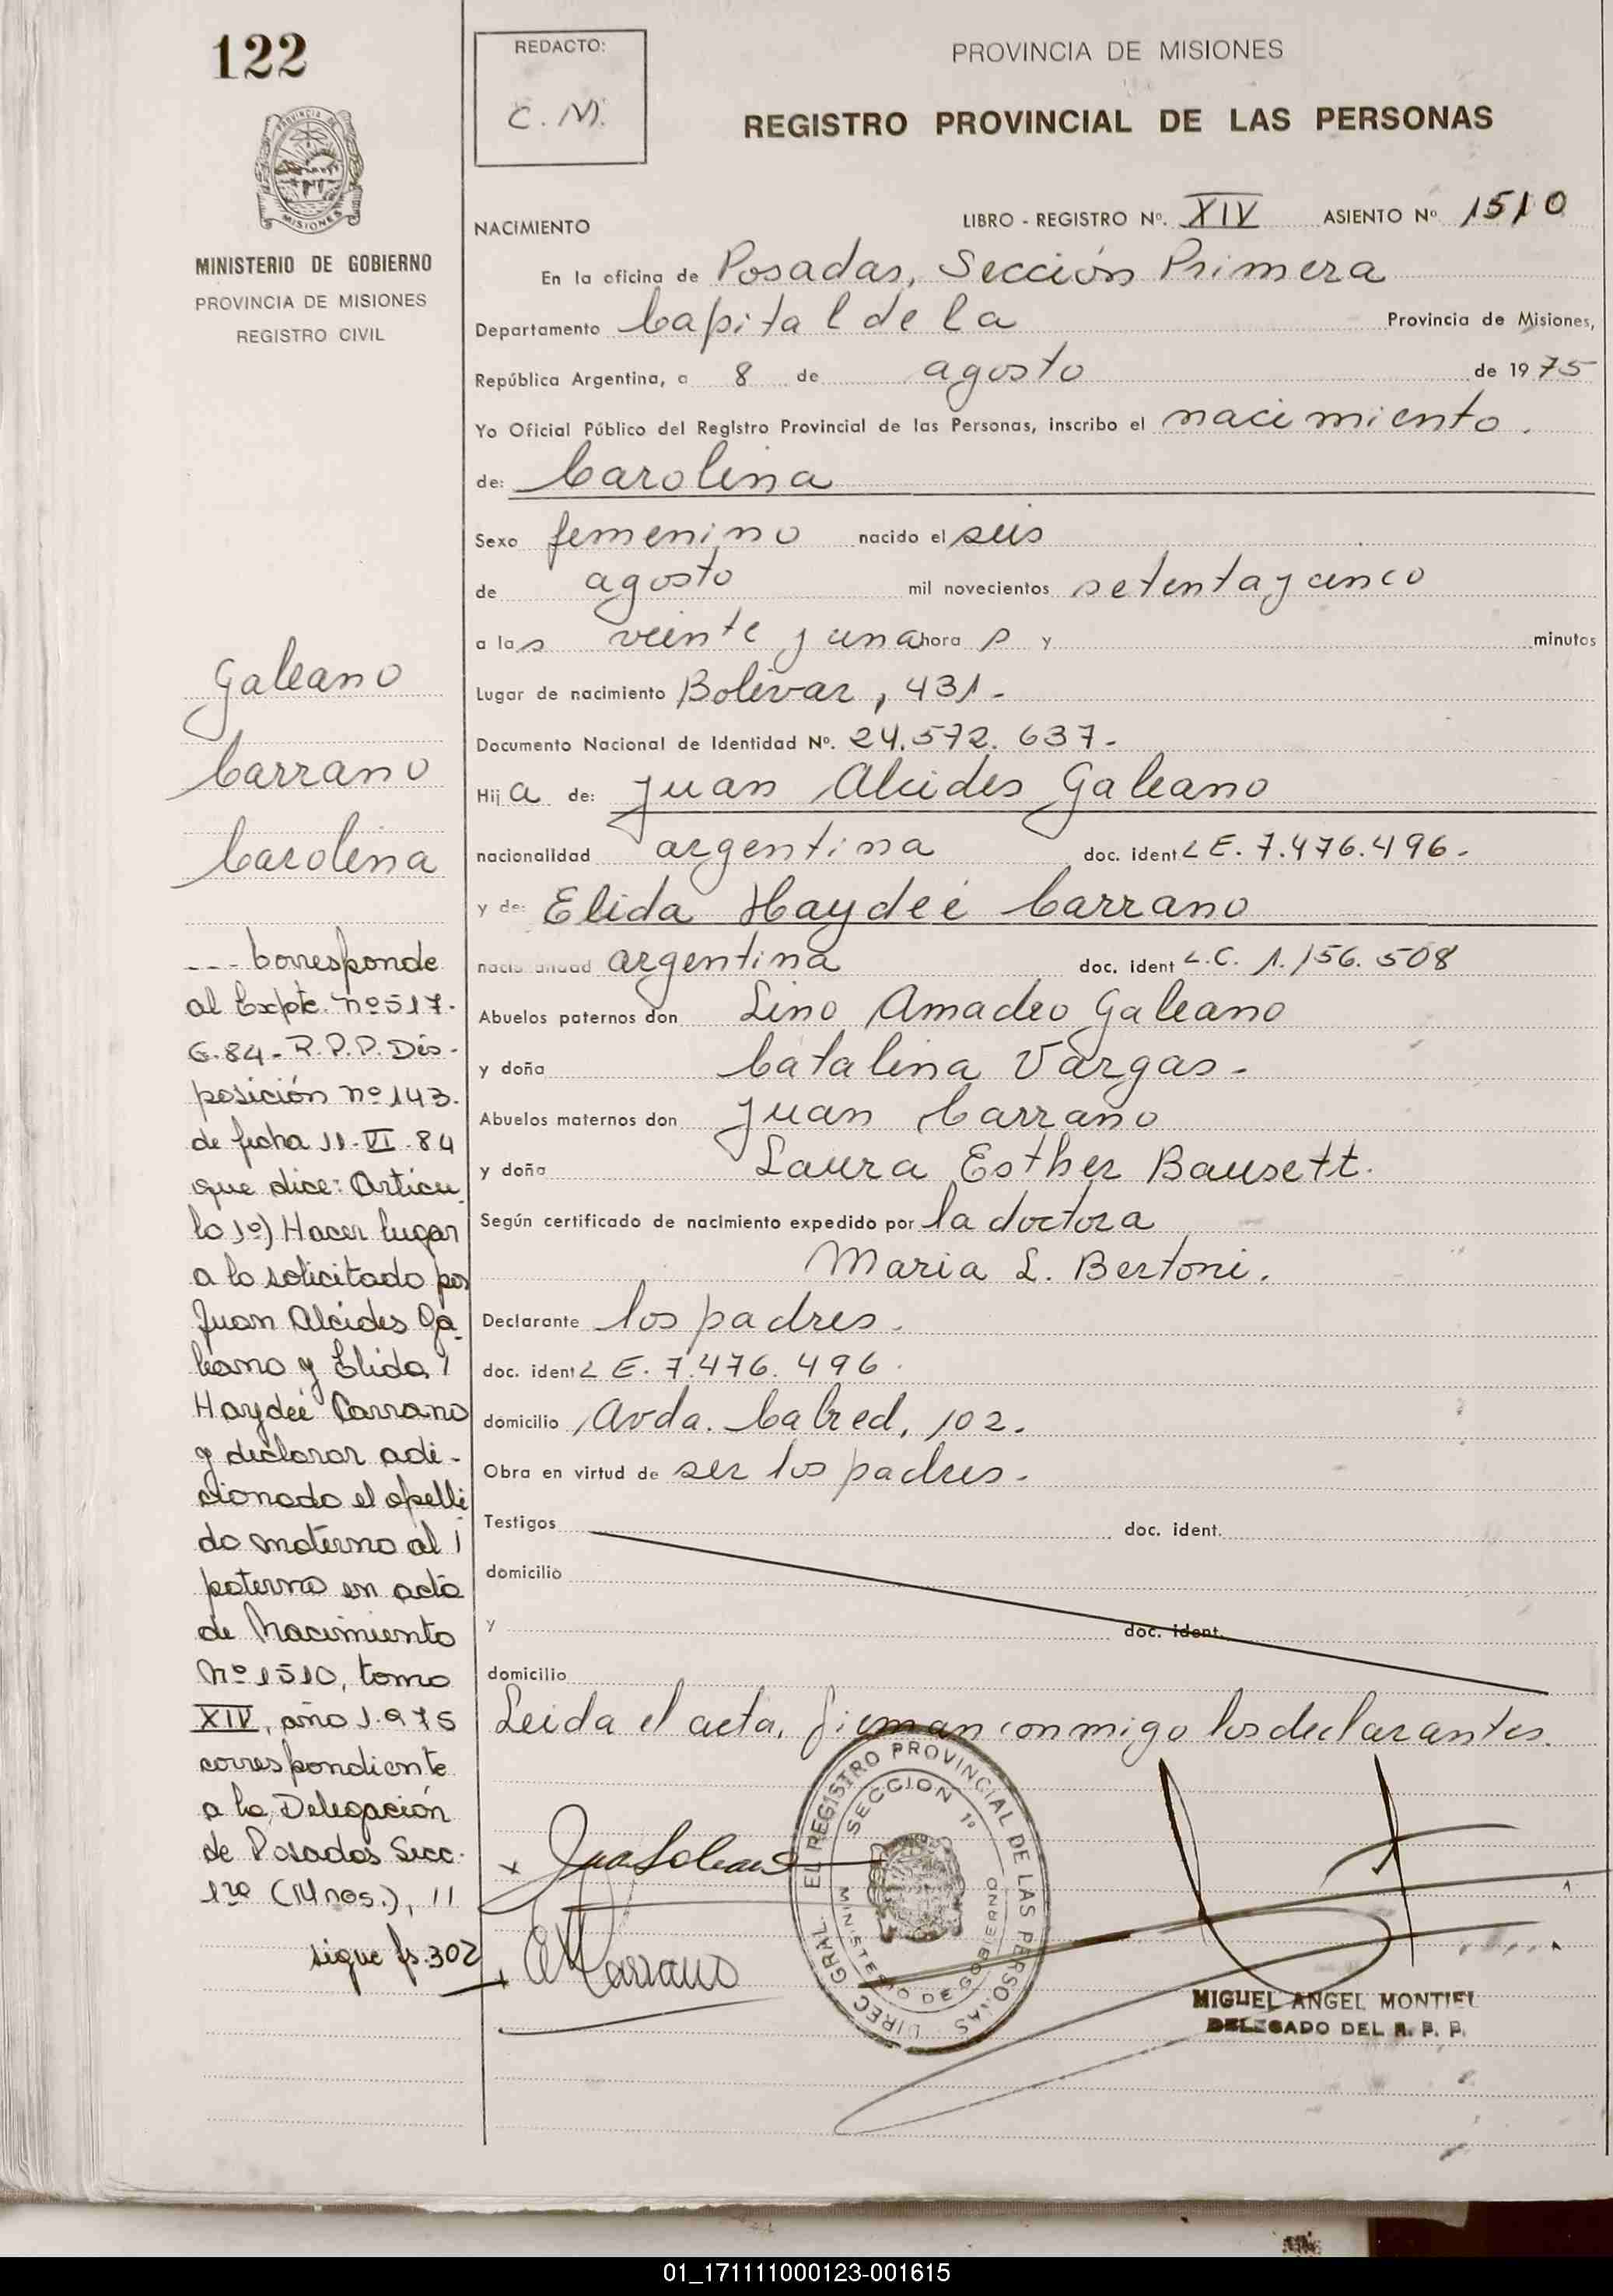 122
PROVINCIA DE
MISIONES
MINISTERIO DE GOBIERNO
PROVINCIA DE MISIONES
REGISTRO CIVIL
Galeano
Carrano
Carolina
--- Corresponde
al Expte. Nº 517.
G.84 - R.P.P. Dis-
posición nº 143.
de fecha 11-VI-84
que dice: Articu
lo 1º) Hacer lugar
a lo solicitado por
Juan Alcides Ga-
leano y Elida
Haydeé Carrano
y declarar adi-
cionado el apelli
do materno al
paterno en acta
de Nacimiento
Nº 1510, tomo
XIV, año 1.975
correspondiente
a la Delegación
de Posadas Secc.
1ra (Mnes.), 11
sigue fs. 302
REDACTO:
C. M.
PROVINCIA DE MISIONES
REGISTRO PROVINCIAL DE LAS PERSONAS
NACIMIENTO LIBRO - REGISTRO Nº. XIV ASIENTO Nº 1510
En la oficina de Posadas, Sección Primera
Departamento Capital de la Provincia de Misiones,
República Argentina, a 8 de agosto de 1975
Yo Oficial Público del Registro Provincial de las Personas, inscribo el nacimiento.
de: Carolina
Sexo femenino nacido el seis
de agosto mil novecientos setenta y cinco
a las veinte y una hora s y minutos
Lugar de nacimiento Bolivar, 431.-
Documento Nacional de Identidad Nº. 24.572.637.-
Hija de: Juan Alcides Galeano
nacionalidad argentina doc. ident L E. 7.476.496.
y de: Elida Haydeé Carrano
nacionalidad argentina doc. ident L.C. 1.156.508
Abuelos paternos don Lino Amadeo Galeano
y doña Catalina Vargas.
Abuelos maternos don Juan Carrano
y doña Laura Esther Bausett.
Según certificado de nacimiento expedido por la doctora
Maria L. Bertoni.
Declarante los padres.
doc. ident L E. 7.476.496.
domicilio Avda. Cabred, 102.
Obra en virtud de ser los padres.
Testigos doc. ident.
domicilio
y doc. ident.
domicilio
Leida el acta, firman conmigo los declarantes.
DIREC GRAL. EL REGISTRO PROVINCIAL DE LAS PERSONAS
SECCION 1º
MINISTERIO DE GOBIERNO
MIGUEL ANGEL MONTIEL
DELEGADO DEL R. P. P.
01_171111000123-001615